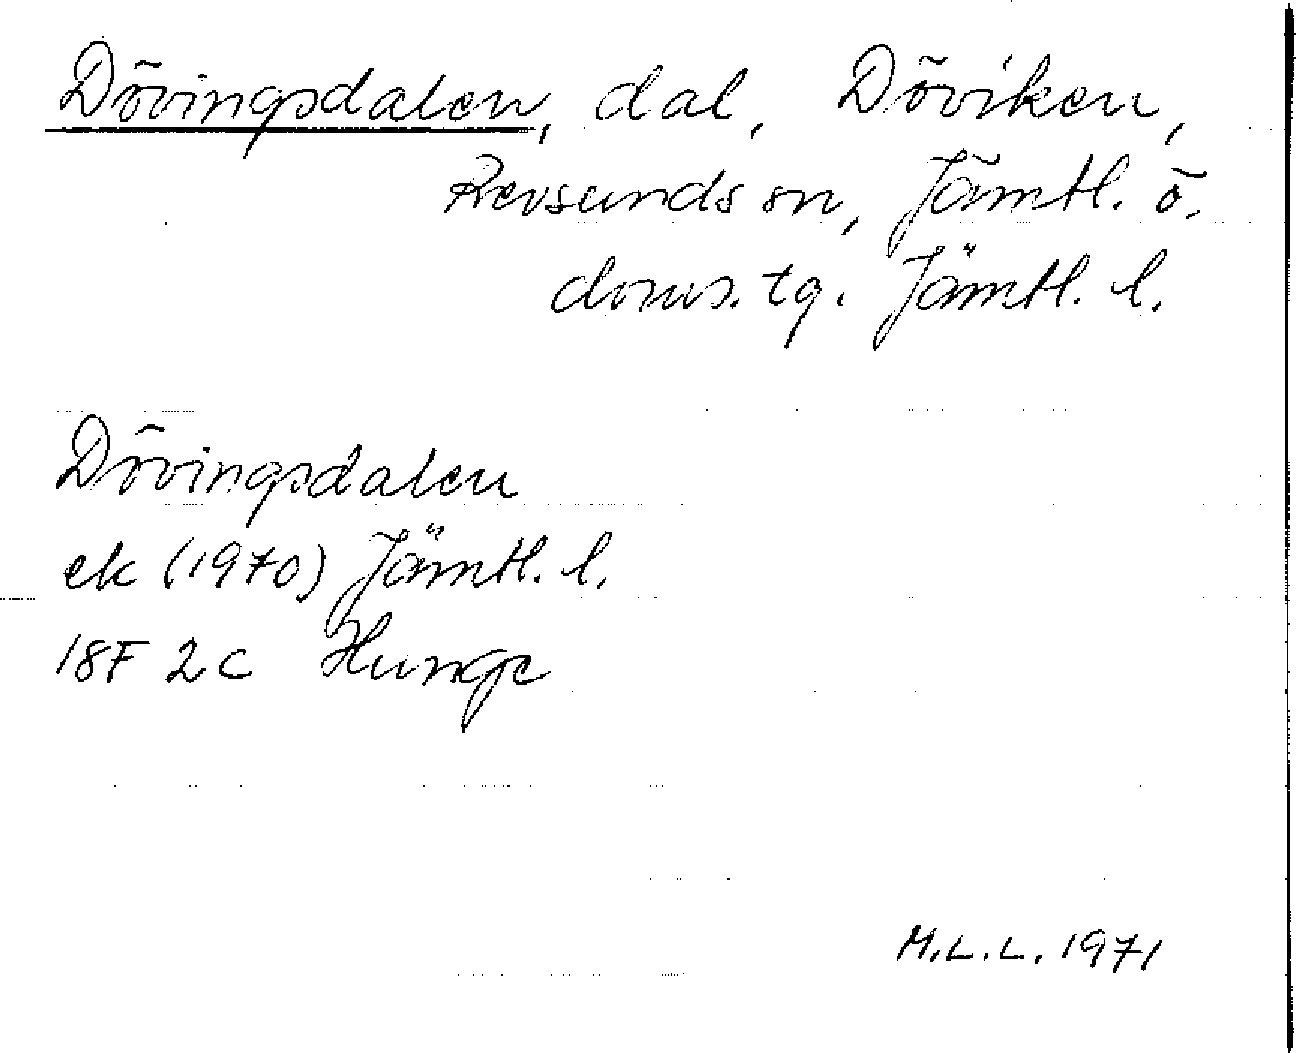 Dövingsdalen, dal, Döviken,
Revsunds sn, Jämtl. ö.
doms. tg. Jämtl. l.
Dövingsdalen
ek (1970) Jämtl. l.
18F 2c Hunge
M.L.L. 1971